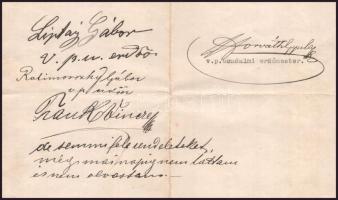 Liptáy Gábor
v. p. u. erdőő
Ratimorszky Gábor
v p erdőőr
Frank Vincze
de semmiféle rendeleteket,
még mai napig nem láttam
és nem olvastam. —
Horváth Gyula
v.p.uradalmi erdőmester.